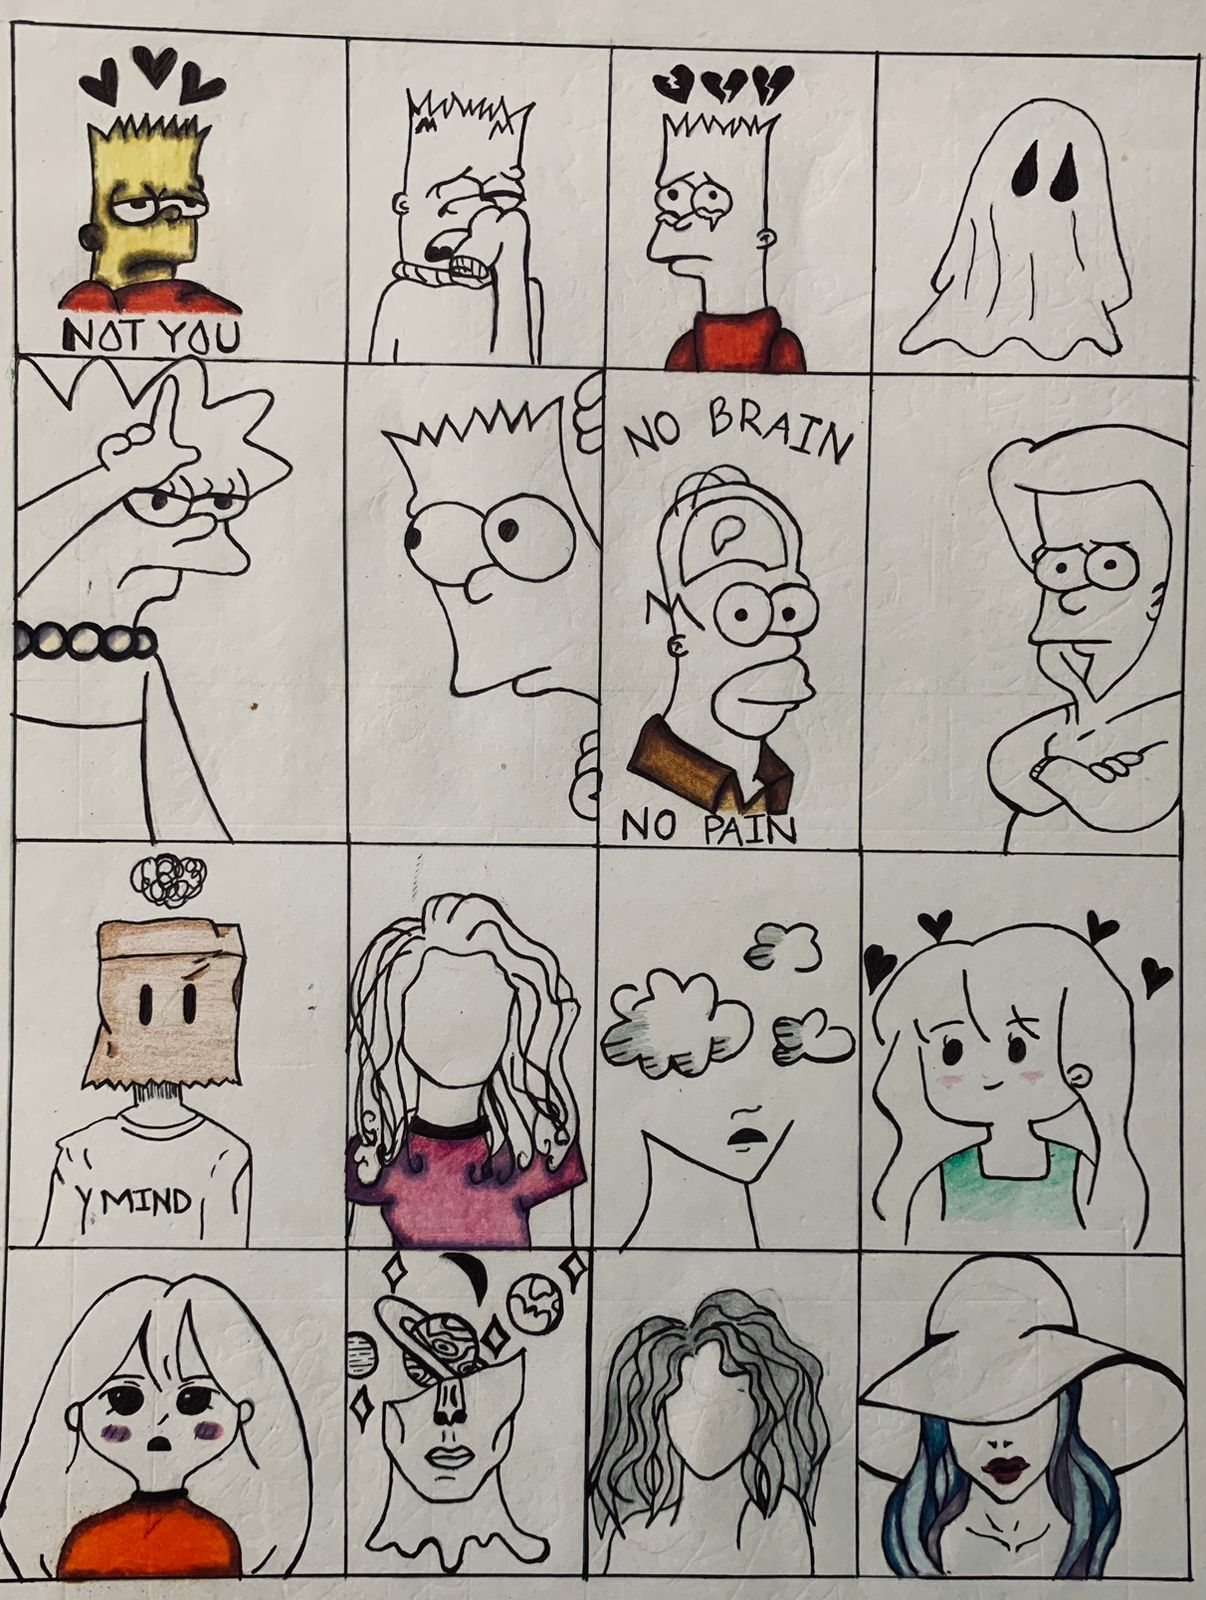 NOT YOU
NO BRAIN
NO PAIN
Y MIND